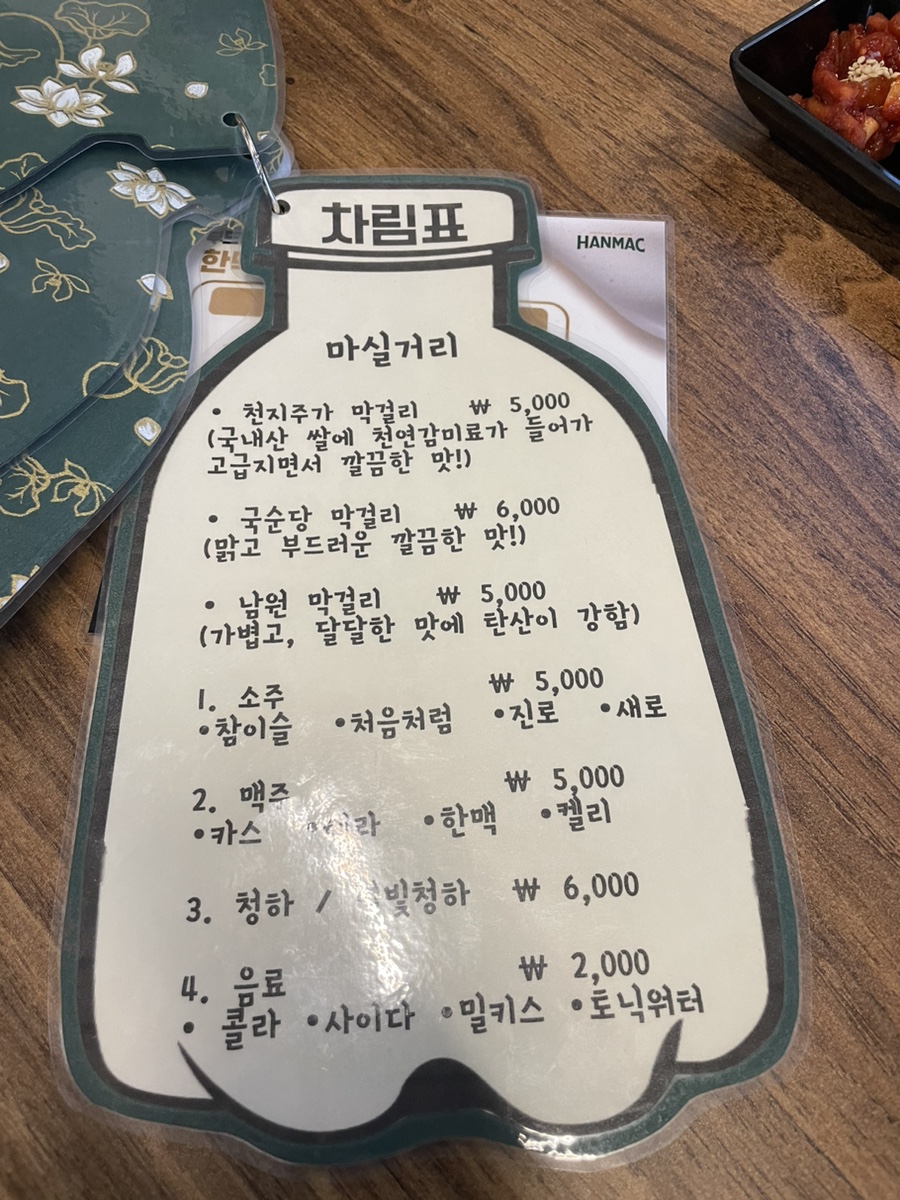 차림표
HANMAC
마실거리
• 천지주가 막걸리 ₩ 5,000
(국내산 쌀에 천연감미료가 들어가
고급지면서 깔끔한 맛!)
• 국순당 막걸리 ₩ 6,000
(맑고 부드러운 깔끔한 맛!)
• 남원 막걸리 ₩ 5,000
(가볍고, 달달한 맛에 탄산이 강함)
1. 소주 ₩ 5,000
•참이슬 •처음처럼 •진로 •새로
2. 맥주 ₩ 5,000
•카스 •한맥 •켈리
3. 청하 / ₩ 6,000
4. 음료 ₩ 2,000
• 콜라 •사이다 •밀키스 •토닉워터